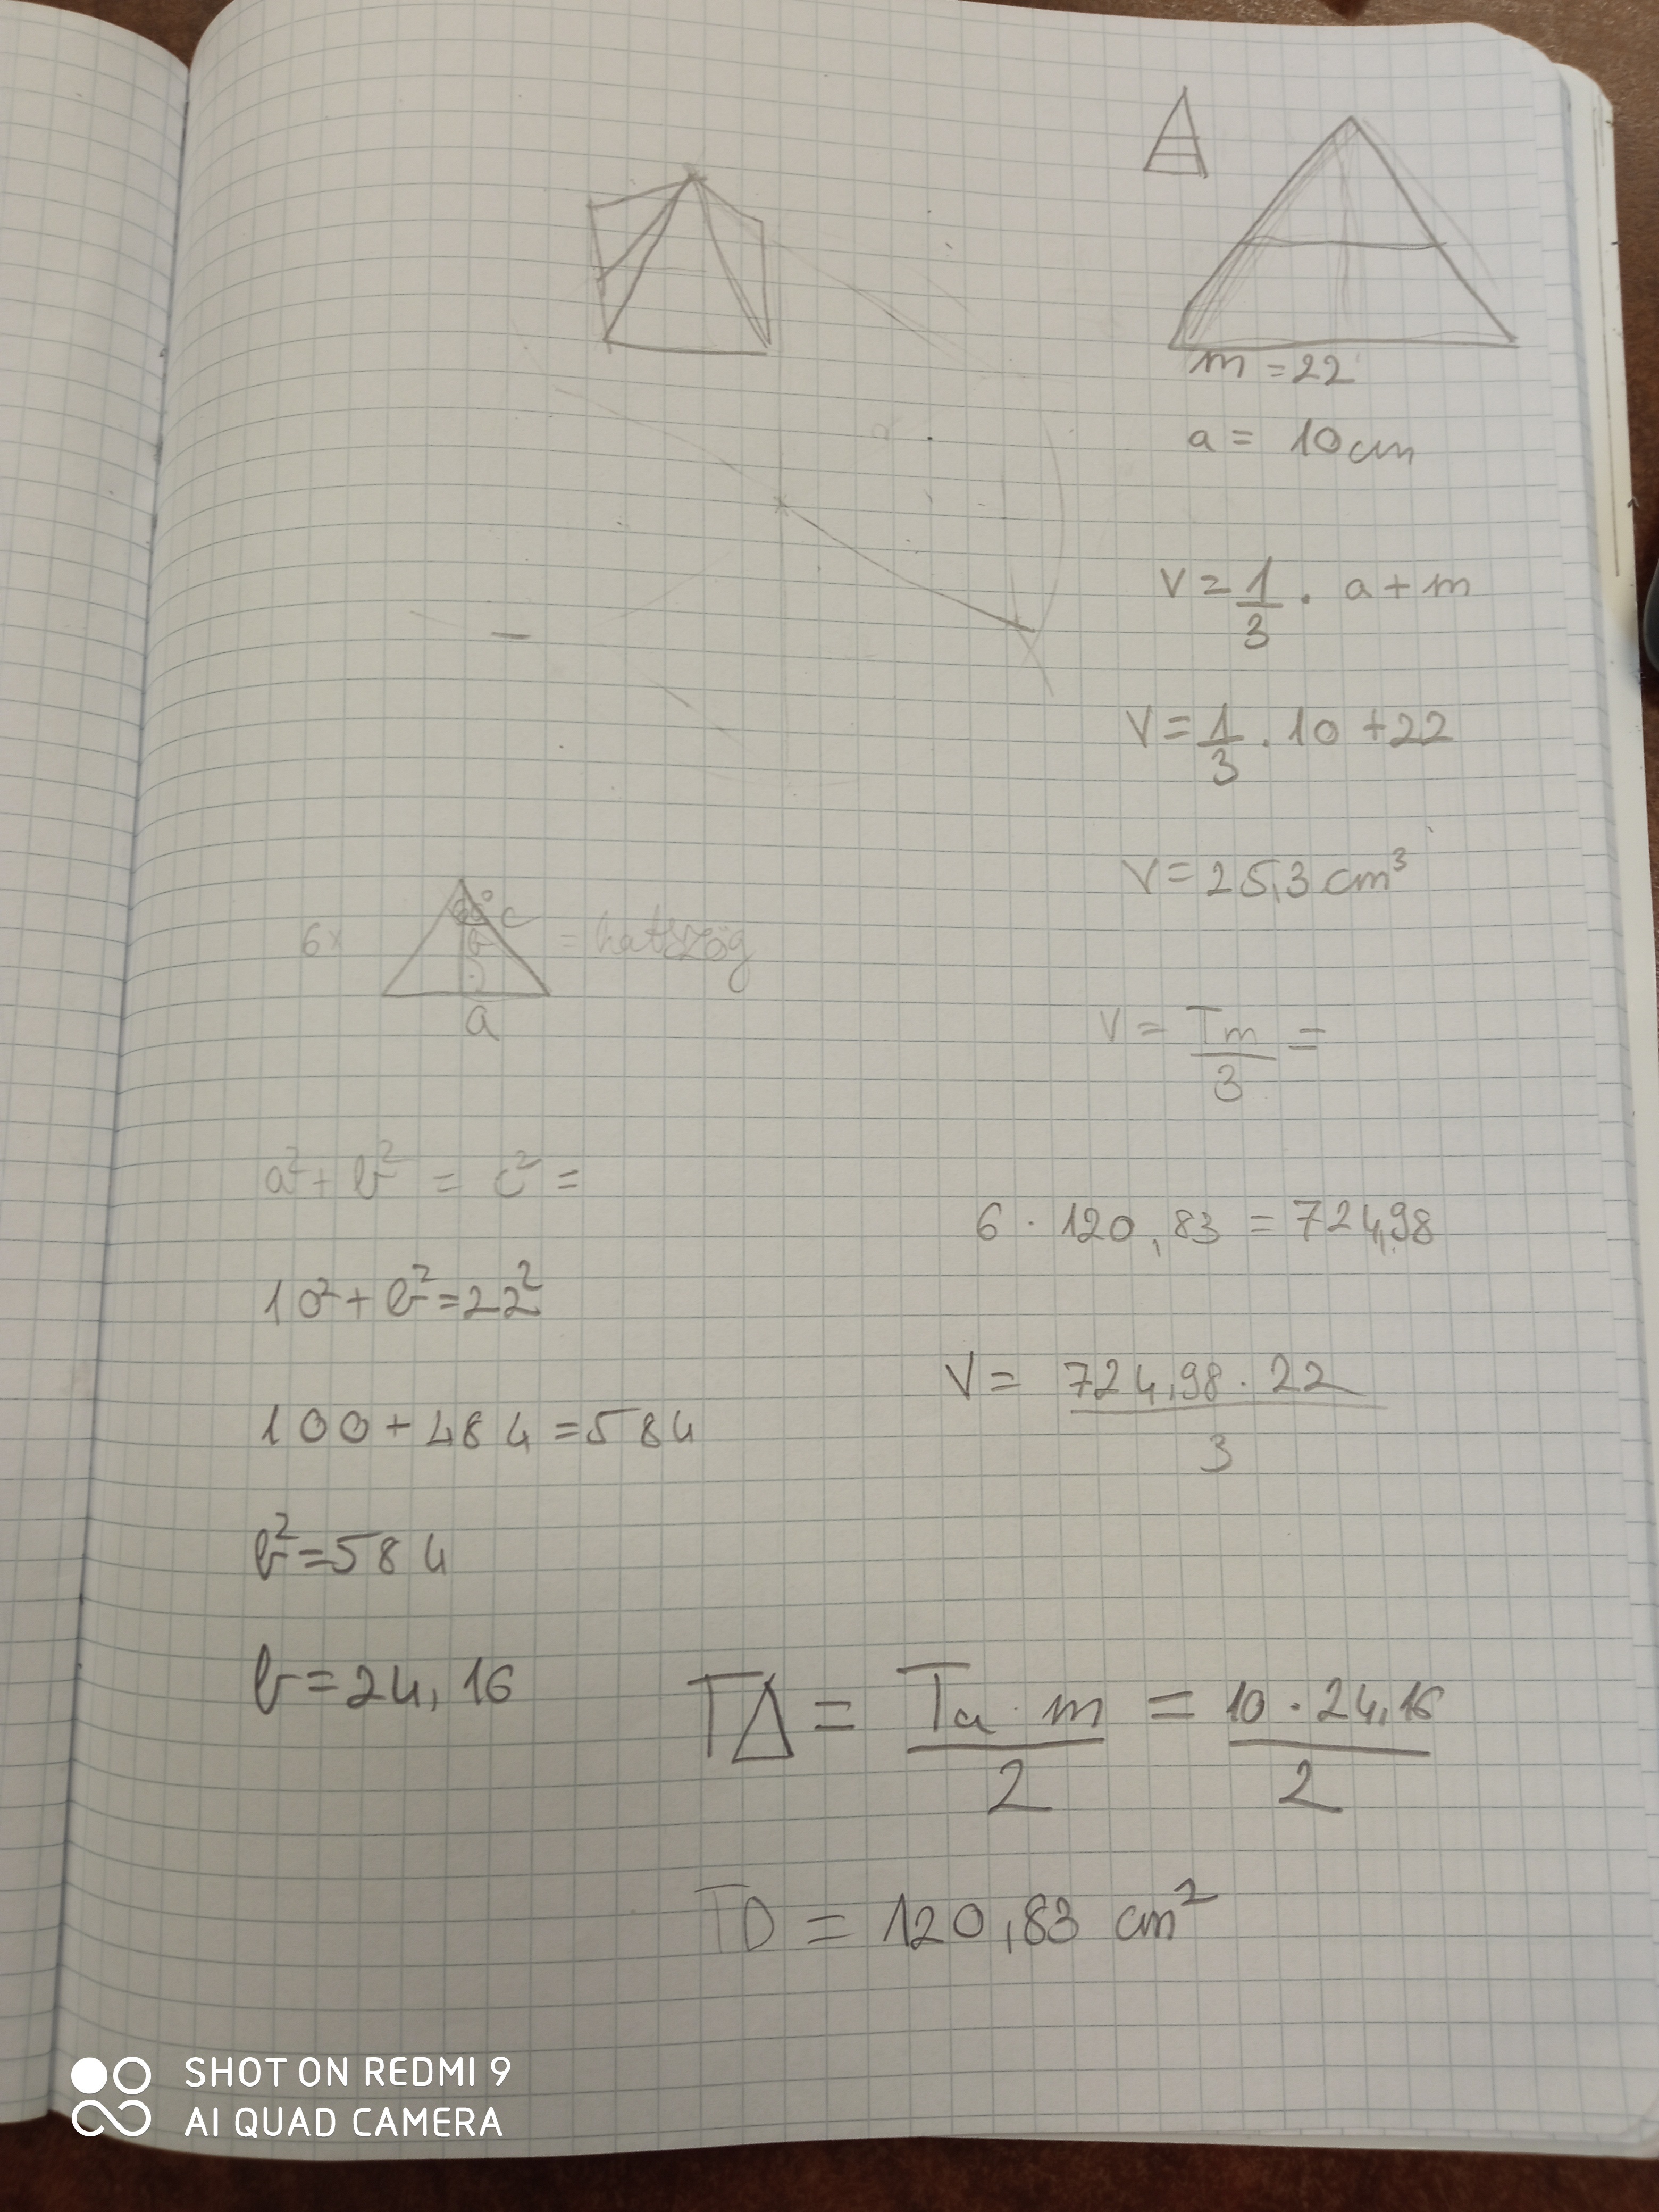 m = 22
a = 10 cm
V = 1/3 · a + m
V = 1/3 · 10 + 22
V = 25,3 cm³
6x 60° c b a = hatszög
V = Tm/3 =
a² + b² = c² =
6 · 120,83 = 724,98
10² + b² = 22²
V = 724,98 · 22 / 3
100 + 484 = 584
b² = 584
b = 24,16
T△ = Ta · m / 2 = 10 · 24,16 / 2
TD = 120,83 cm²
SHOT ON REDMI 9
AI QUAD CAMERA